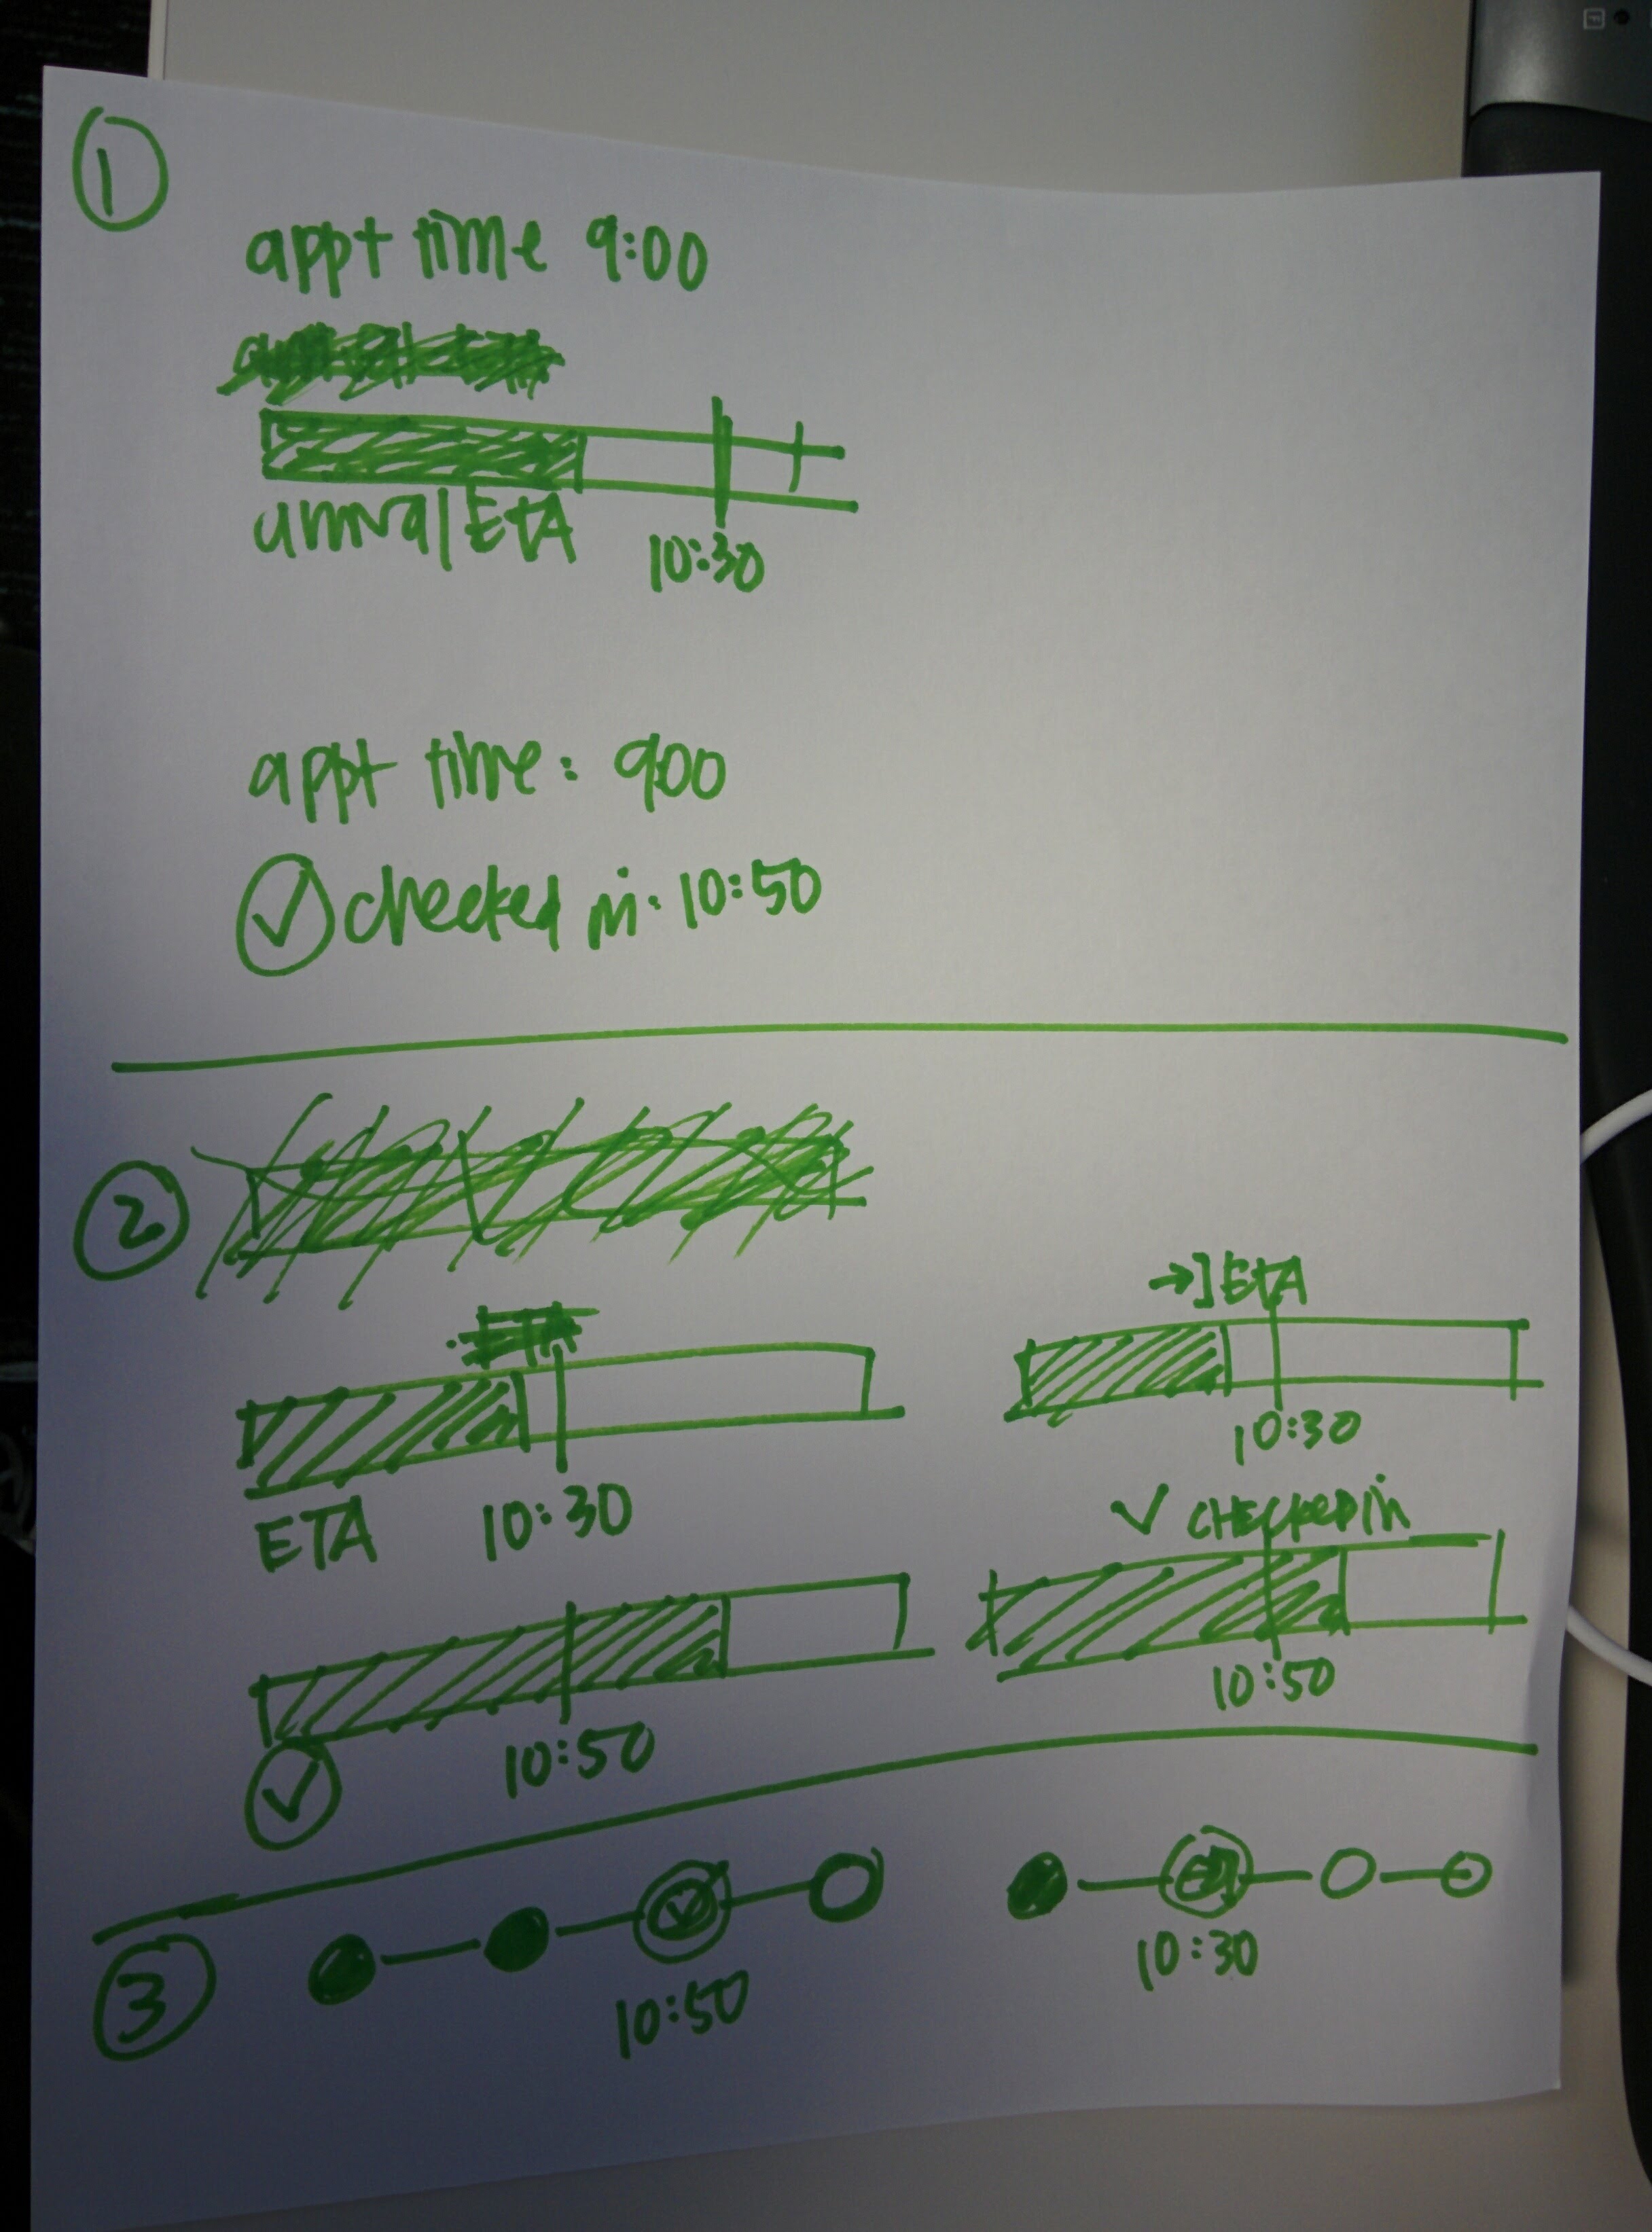 1
appt time 9:00
arrival ETA 10:30
appt time: 900
checked in. 10:50
2
ETA 10:30
10:50
ETA
10:30
CHECKED in
10:50
3
10:50
10:30